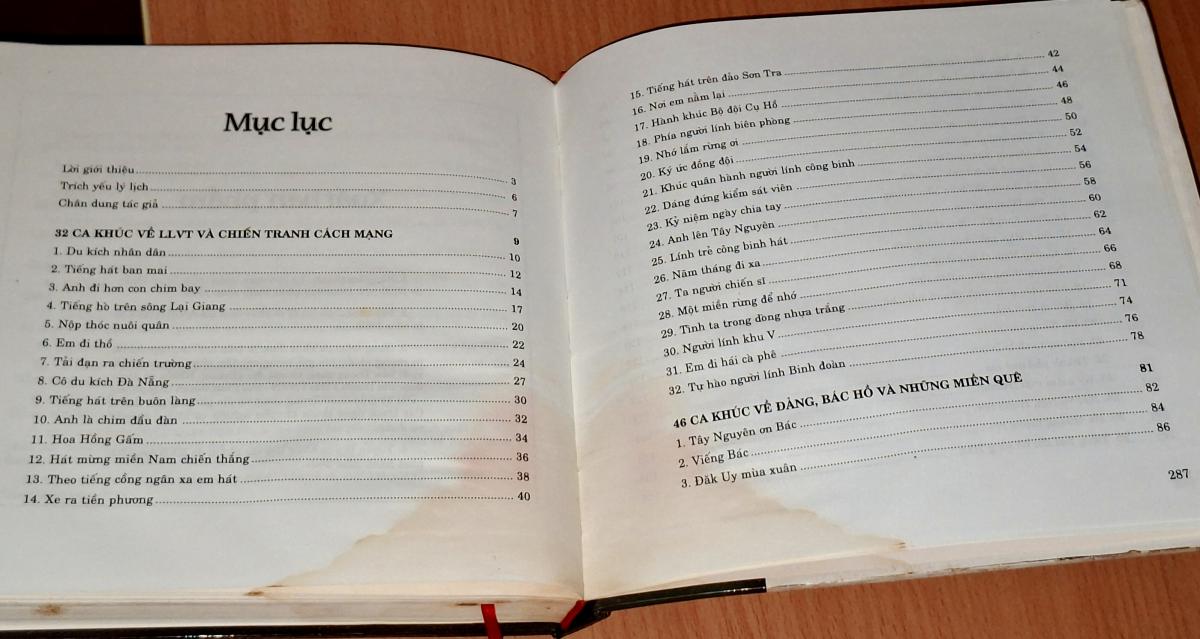 Mục lục
Lời giới thiệu 3
Trích yếu lý lịch 6
Chân dung tác giả 7
32 CA KHÚC VỀ LLVT VÀ CHIẾN TRANH CÁCH MẠNG 9
1. Du kích nhân dân 10
2. Tiếng hát ban mai 12
3. Anh đi hơn con chim bay 14
4. Tiếng hò trên sông Lại Giang 17
5. Nộp thóc nuôi quân 20
6. Em đi thồ 22
7. Tải đạn ra chiến trường 24
8. Cô du kích Đà Nẵng 27
9. Tiếng hát trên buôn làng 30
10. Anh là chim đầu đàn 32
11. Hoa Hồng Gấm 34
12. Hát mừng miền Nam chiến thắng 36
13. Theo tiếng cồng ngân xa em hát 38
14. Xe ra tiền phương 40
15. Tiếng hát trên đảo Sơn Tra 42
16. Nơi em nằm lại 44
17. Hành khúc Bộ đội Cụ Hồ 46
18. Phía người lính biên phòng 48
19. Nhớ lắm rừng ơi 50
20. Ký ức đồng đội 52
21. Khúc quân hành người lính công binh 54
22. Dáng đứng kiểm sát viên 56
23. Kỷ niệm ngày chia tay 58
24. Anh lên Tây Nguyên 60
25. Lính trẻ công binh hát 62
26. Năm tháng đi xa 64
27. Ta người chiến sĩ 66
28. Một miền rừng để nhớ 68
29. Tình ta trong dòng nhựa trắng 71
30. Người lính khu V 74
31. Em đi hái cà phê 76
32. Tự hào người lính Binh đoàn 78
46 CA KHÚC VỀ ĐẢNG, BÁC HỒ VÀ NHỮNG MIỀN QUÊ 81
1. Tây Nguyên ơn Bác 82
2. Viếng Bác 84
3. Đăk Uy mùa xuân 86
287